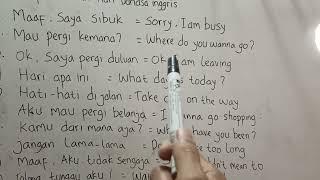 hari bahasa inggris
Maaf, Saya sibuk = Sorry, I am busy
Mau pergi kemana? = Where do you wanna go?
Ok, Saya pergi duluan = Ok am leaving
Hari apa ini = What day today?
Hati-hati di jalan = Take on the way
Aku mau pergi belanja = I wanna go shopping
Kamu dari mana aja? = have you been?
Jangan lama-lama = be too long
Maaf, Aku tidak sengaja = didn't mean to
tolong tunggu aku! =